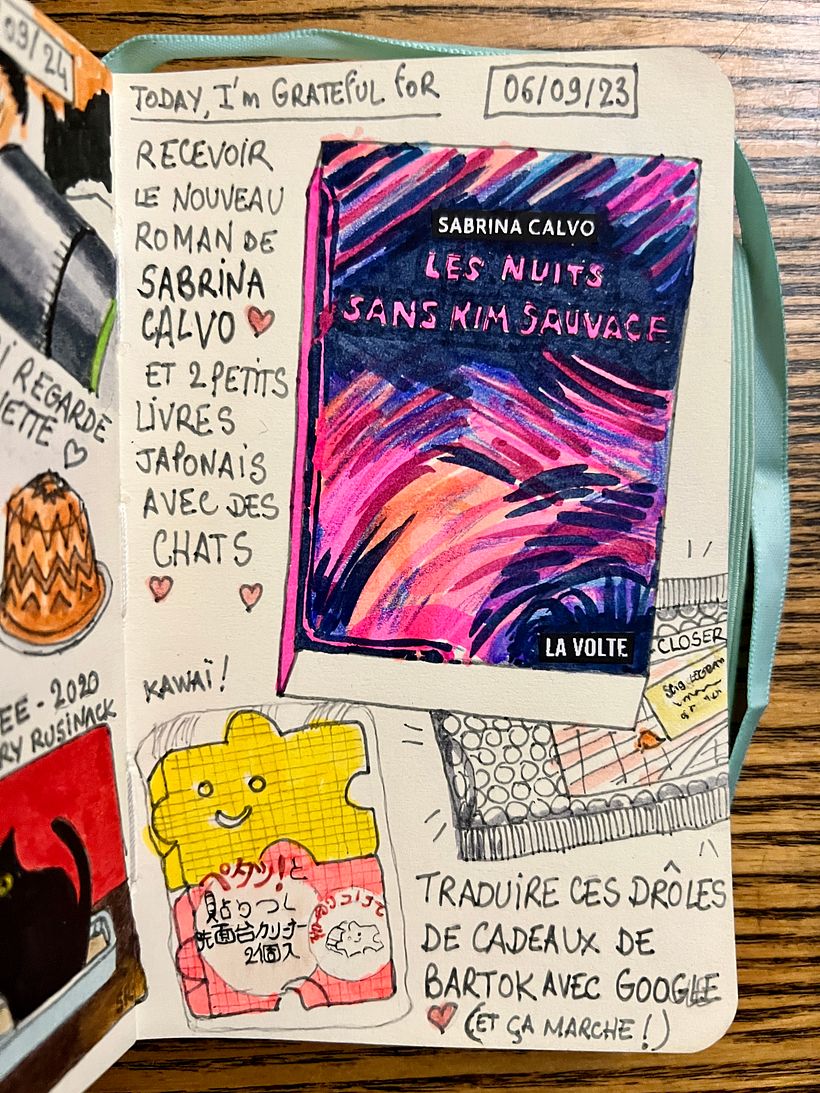 09/24
REGARDE
- 2020
RUSINACK
TODAY, I'm GRATEFUL FOR
06/09/23
RECEVOIR
LE NOUVEAU
ROMAN DE
SABRINA
CALVO
ET 2 PETITS
LIVRES
JAPONAIS
AVEC DES
CHATS
SABRINA CALVO
LES NUITS
SANS KIM SAUVAGE
LA VOLTE
KAWAÏ!
CLOSER
ペタッ!と
貼りつく
洗面台クリーナー
2個入
TRADUIRE CES DRÔLES
DE CADEAUX DE
BARTOK AVEC GOOGLE
(ET ÇA MARCHE!)